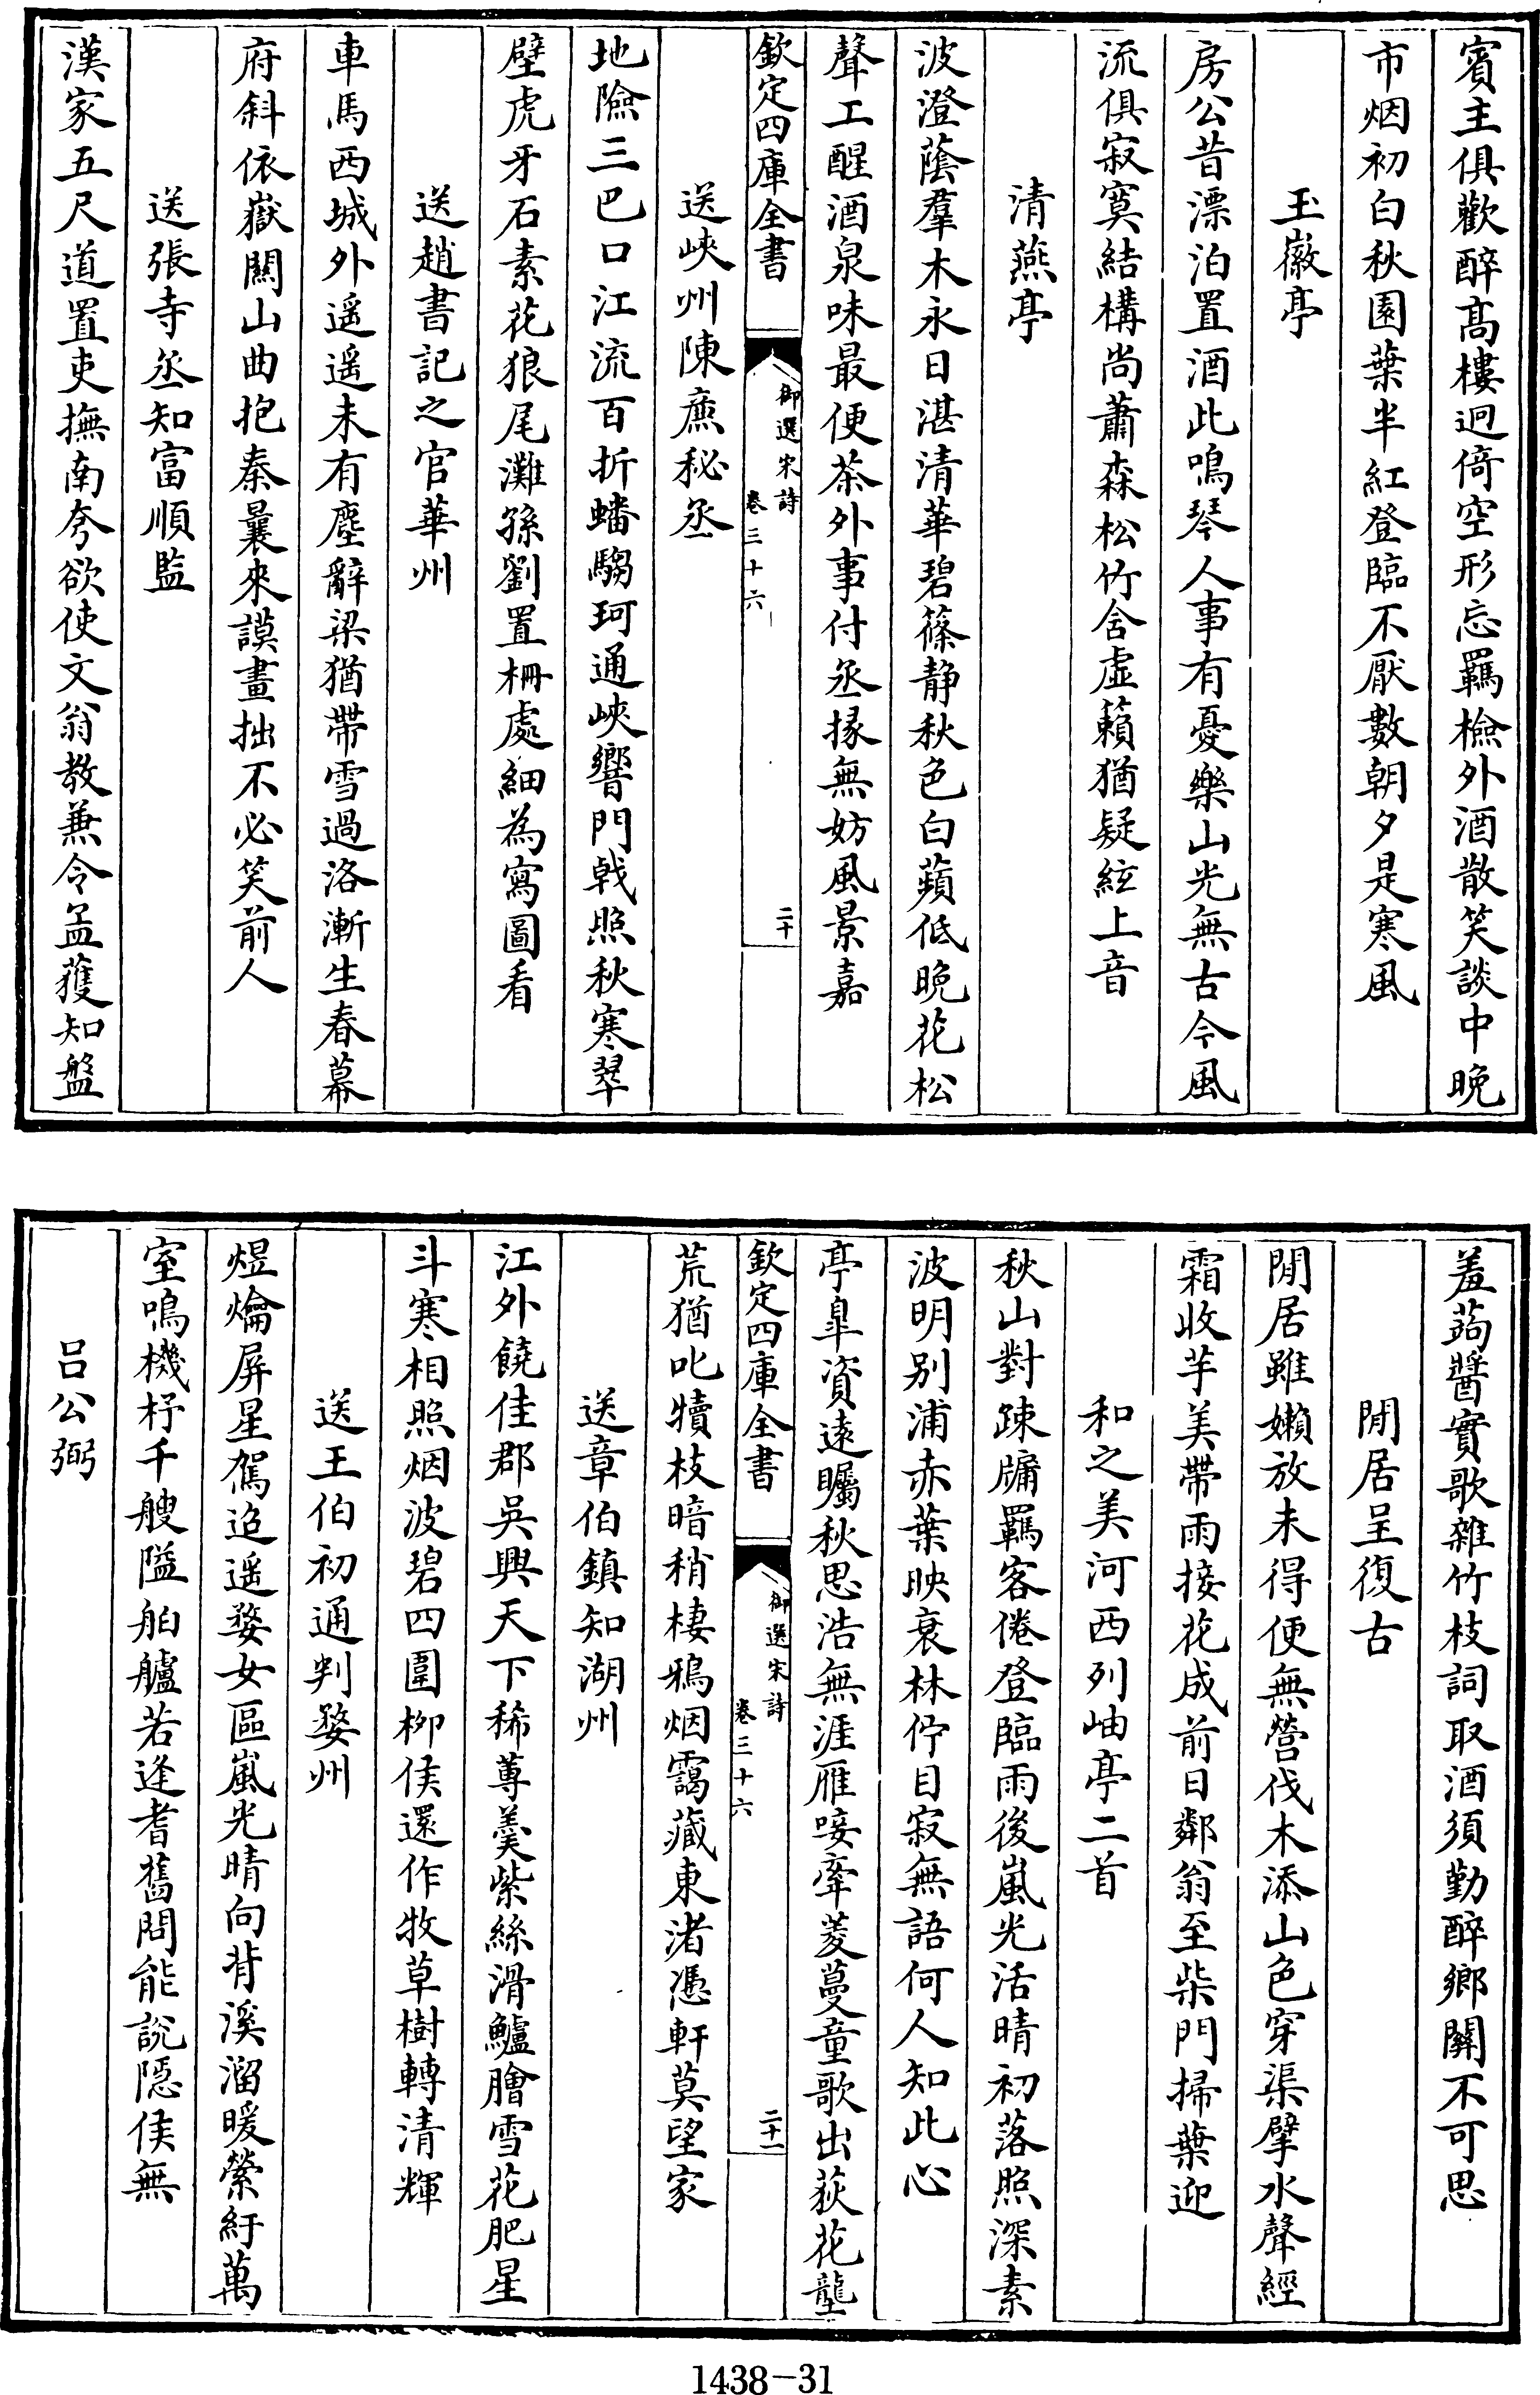 賓主俱歡醉高樓迥倚空形忘羈檢外酒散笑談中晚
市烟初白秋園葉半紅登臨不厭數朝夕是寒風
玉徽亭
房公昔漂泊置酒此鳴琴人事有憂樂山光無古今風
流俱寂寞結構尚蕭森松竹含虛籟猶疑絃上音
清燕亭
波澄蔭羣木永日湛清華碧篠静秋色白蘋低晚花松
聲工醒酒泉味最便茶外事付丞掾無妨風景嘉
欽定四庫全書
御選宋詩
卷三十六
二十
送峽州陳廡秘丞
地險三巴口江流百折蟠騶珂通峽響門戟照秋寒翠
壁虎牙石素花狼尾灘孫劉置柵處細為寫圖看
送趙書記之官華州
車馬西城外遥遥未有塵辭梁猶帶雪過洛漸生春幕
府斜依嶽關山曲抱秦曩來謨畫拙不必笑前人
送張寺丞知富順監
漢家五尺道置吏撫南夸欲使文翁教兼令孟獲知盤
羞蒟醬實歌雜竹枝詞取酒須勤醉鄉關不可思
閒居呈復古
閒居雖嬾放未得便無營伐木添山色穿渠擘水聲經
霜收芋美帶雨接花成前日鄰翁至柴門掃葉迎
和之美河西列岫亭二首
秋山對疎牖羈客倦登臨雨後嵐光活晴初落照深素
波明别浦赤葉映衰林佇目寂無語何人知此心
亭臯資遠矚秋思浩無涯雁唼牽菱蔓童歌出荻花壟
荒猶叱犢枝暗稍棲鴉烟靄藏東渚憑軒莫望家
欽定四庫全書
御選宋詩
卷三十六
二十一
送章伯鎮知湖州
江外饒佳郡吳興天下稀蓴羹紫絲滑鱸膾雪花肥星
斗寒相照烟波碧四圍栁侯還作牧草樹轉清輝
送王伯初通判婺州
煜爚屏星駕迢遥婺女區嵐光晴向背溪溜暖縈紆萬
室鳴機杼千艘隘舶艫若逢耆舊問能說隱侯無
吕公弼
1438-31